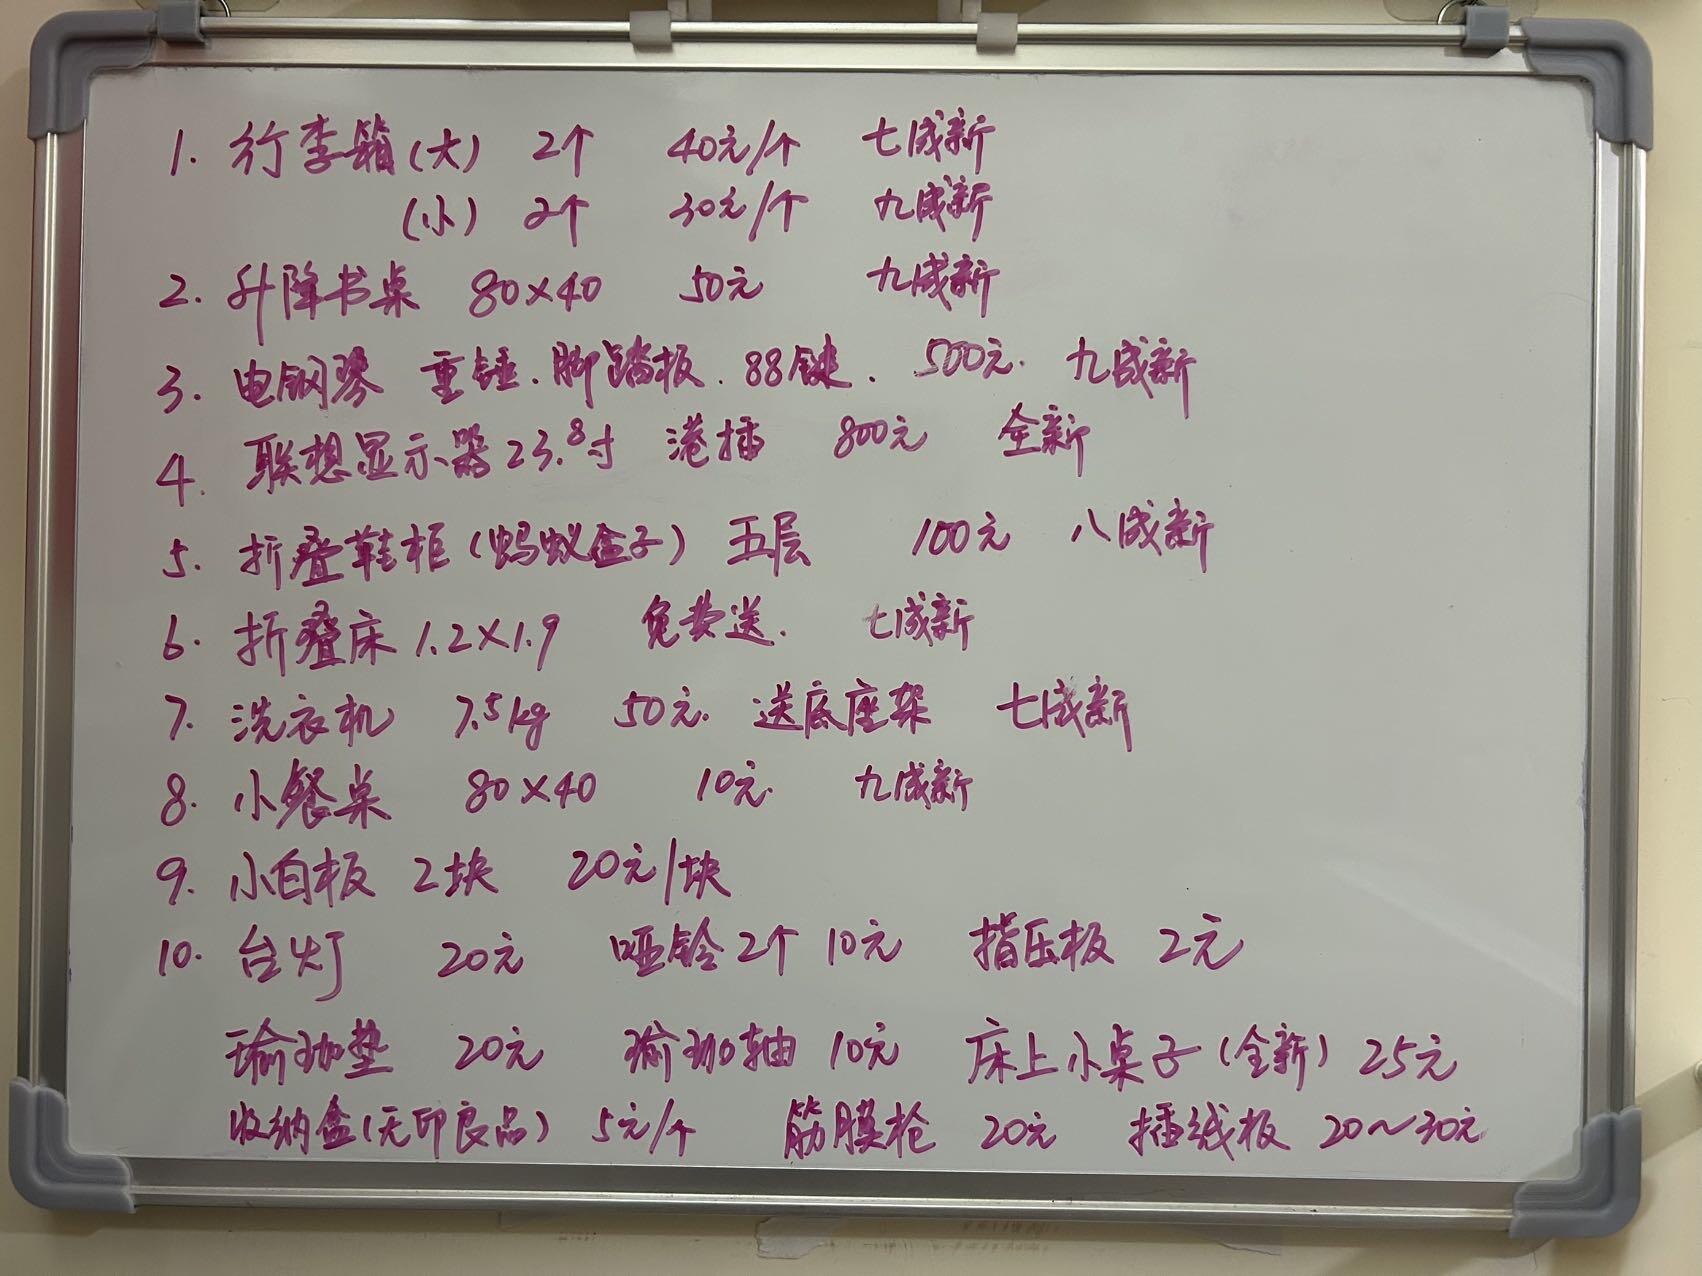 1. 行李箱(大) 2个 40元/个 七成新
(小) 2个 30元/个 九成新
2. 升降书桌 80×40 50元 九成新
3. 电钢琴 重锤.脚踏板.88键. 500元. 九成新
4. 联想显示器23.8寸 港插 800元 全新
5. 折叠鞋柜(蚂蚁盒子) 五层 100元 八成新
6. 折叠床1.2×1.9 免费送. 七成新
7. 洗衣机 7.5kg 50元. 送底座架 七成新
8. 小餐桌 80×40 10元. 九成新
9. 小白板 2块 20元/块
10. 台灯 20元 哑铃2个 10元 指压板 2元
瑜珈垫 20元 瑜珈轴 10元 床上小桌子(全新) 25元
收纳盒(无印良品) 5元/个 筋膜枪 20元 插线板 20~30元